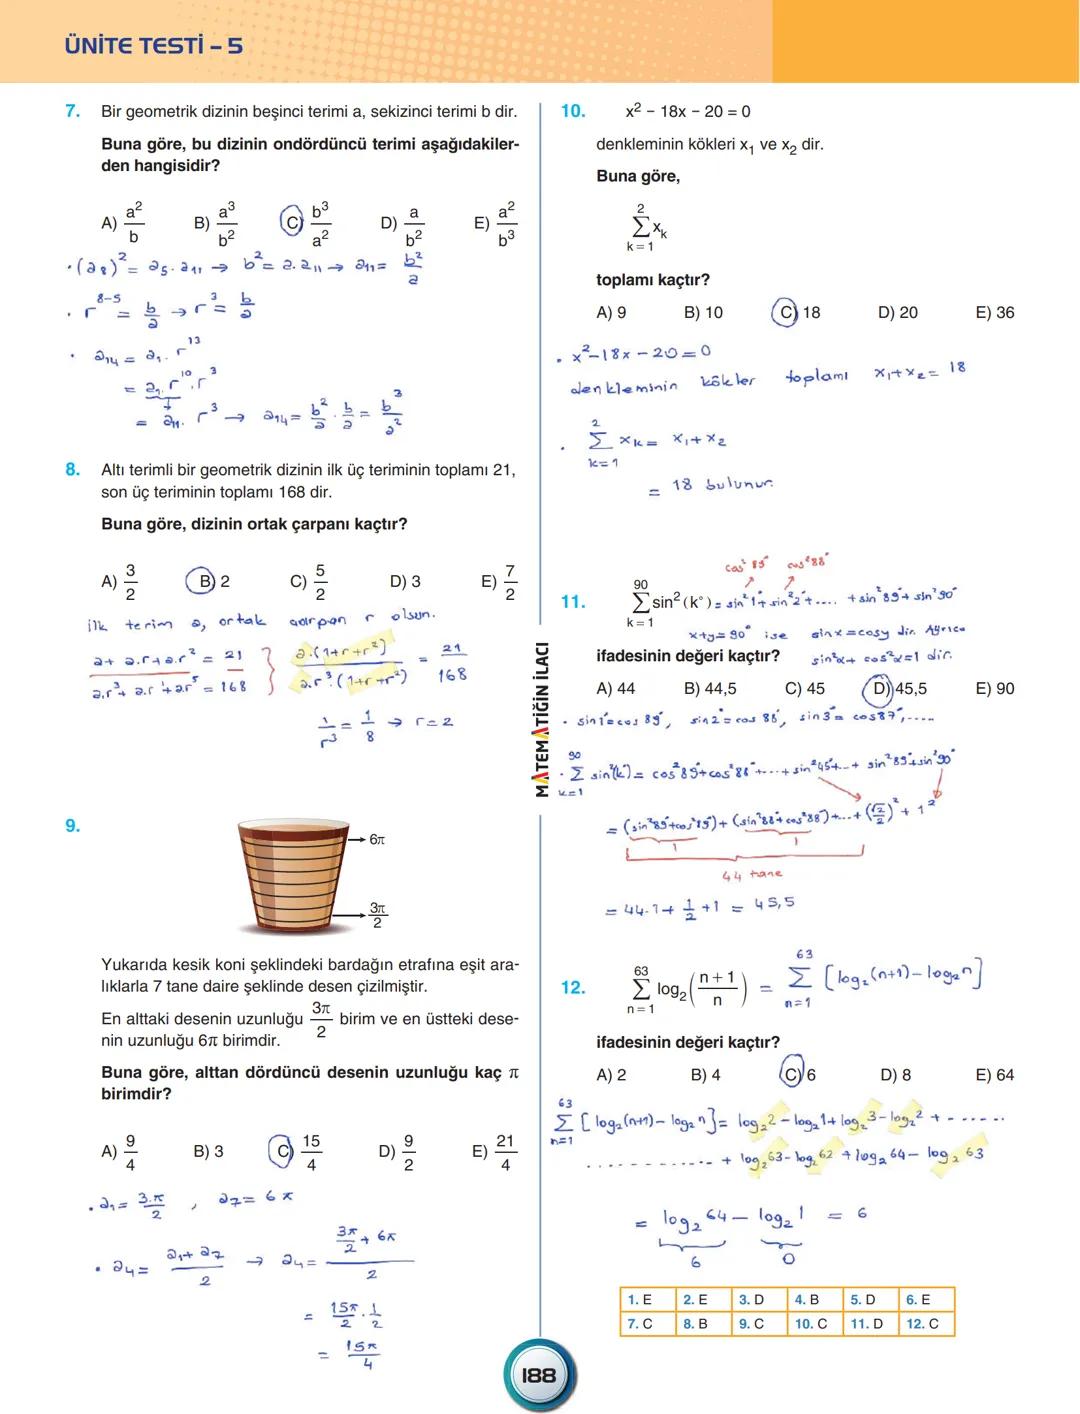 ÜNİTE TESTİ – 5
7. Bir geometrik dizinin beşinci terimi a, sekizinci terimi b dir.
Buna göre, bu dizinin ondördüncü terimi aşağıdakiler-
den hangisidir?
A) a²/b B) a³/b² C) b³/a² D) a/b² E) a²/b³
• (a₈)² = a₅ . a₁₁ → b² = a . a₁₁ → a₁₁ = b²/a
• r⁸⁻⁵ = b/a → r³ = b/a
• a₁₄ = a₁ . r¹³
= a₁ . r¹⁰ . r³
= a₁₁ . r³ → a₁₄ = b²/a . b/a = b³/a²
8. Altı terimli bir geometrik dizinin ilk üç teriminin toplamı 21,
son üç teriminin toplamı 168 dir.
Buna göre, dizinin ortak çarpanı kaçtır?
A) 3/2 B) 2 C) 5/2 D) 3 E) 7/2
ilk terim a, ortak çarpan r olsun.
a + a.r + a.r² = 21
a.r³ + a.r⁴ + a.r⁵ = 168
a.(1+r+r²) / a.r³.(1+r+r²) = 21/168
1/r³ = 1/8 → r = 2
9.
6π
3π/2
Yukarıda kesik koni şeklindeki bardağın etrafına eşit ara-
lıklarla 7 tane daire şeklinde desen çizilmiştir.
En alttaki desenin uzunluğu 3π/2 birim ve en üstteki dese-
nin uzunluğu 6π birimdir.
Buna göre, alttan dördüncü desenin uzunluğu kaç π
birimdir?
A) 9/4 B) 3 C) 15/4 D) 9/2 E) 21/4
• a₁ = 3.π/2 , a₇ = 6π
• a₄ = (a₁ + a₇)/2 → a₄ = (3π/2 + 6π)/2
= 15π/2 . 1/2
= 15π/4
MATEMATİĞİN İLACI
10. x² – 18x – 20 = 0
denkleminin kökleri x₁ ve x₂ dir.
Buna göre,
2
∑ xₖ
k = 1
toplamı kaçtır?
A) 9 B) 10 C) 18 D) 20 E) 36
• x² – 18x – 20 = 0
denkleminin kökler toplamı x₁ + x₂ = 18
2
• ∑ xₖ = x₁ + x₂
k = 1
= 18 bulunur.
cos²89° cos²88°
90
11. ∑ sin²(k°) = sin²1° + sin²2° + .... + sin²89° + sin²90°
k = 1
x+y = 90° ise sinx = cosy dir. Ayrıca
ifadesinin değeri kaçtır? sin²x + cos²x = 1 dir.
A) 44 B) 44,5 C) 45 D) 45,5 E) 90
• sin1° = cos89°, sin2° = cos88°, sin3° = cos87°, .....
90
• ∑ sin²(k) = cos²89° + cos²88° + .... + sin²45° + .. + sin²89° + sin²90°
k=1
= (sin²89° + cos²89°) + (sin²88° + cos²88°) + ... + (√2/2)² + 1²
1 1
44 tane
= 44.1 + 1/2 + 1 = 45,5
63 63
12. ∑ log₂((n + 1)/n) = ∑ [log₂(n+1) – log₂n]
n = 1 n=1
ifadesinin değeri kaçtır?
A) 2 B) 4 C) 6 D) 8 E) 64
63
∑ [log₂(n+1) – log₂n] = log₂2 – log₂1 + log₂3 – log₂2 + ......
n=1
......... + log₂63 – log₂62 + log₂64 – log₂63
= log₂64 – log₂1 = 6
6 0
1. E 2. E 3. D 4. B 5. D 6. E
7. C 8. B 9. C 10. C 11. D 12. C
188